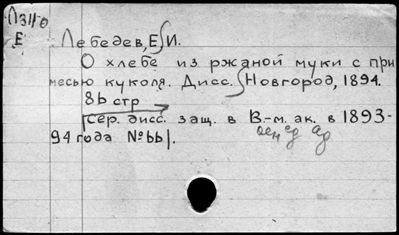 Е
Лебедев, Е. И.
О хлебе из ржаной муки с при
месью куколя. Дисс. Новгород, 1894.
86 стр
(Сер. дисс. защ. в В.-м. ак. в 1893-
94 года № 66).